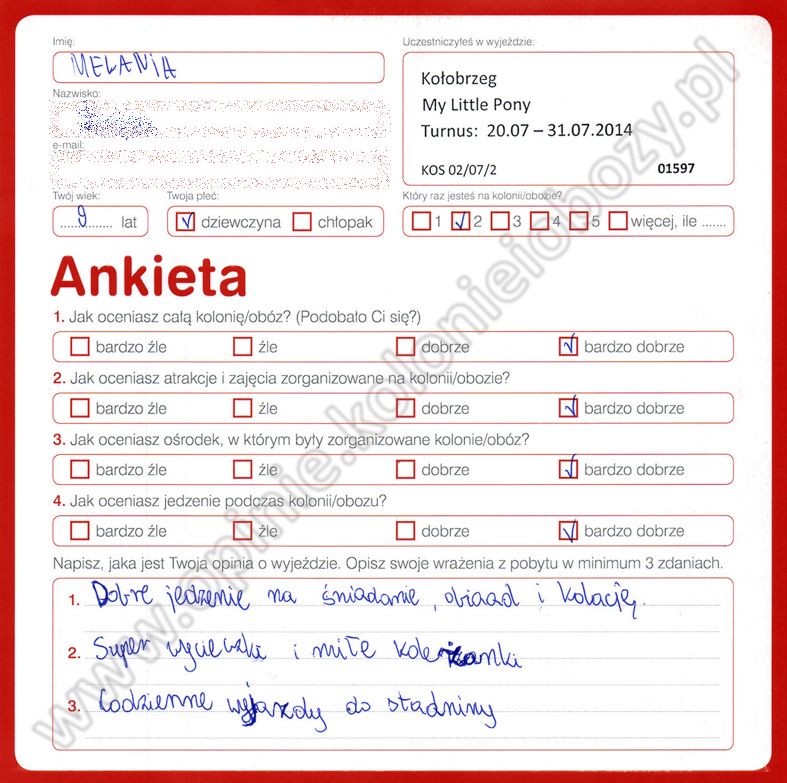 Imię:
Uczestniczyłeś w wyjeździe:
MELANIA
Kołobrzeg
My Little Pony
Turnus: 20.07 – 31.07.2014
KOS 02/07/2 01597
Nazwisko:
e-mail:
Twój wiek: Twoja płeć: Który raz jesteś na kolonii/obozie?
9 lat dziewczyna chłopak 1 2 3 4 5 więcej, ile .......
Ankieta
1. Jak oceniasz całą kolonię/obóz? (Podobało Ci się?)
bardzo źle źle dobrze bardzo dobrze
2. Jak oceniasz atrakcje i zajęcia zorganizowane na kolonii/obozie?
bardzo źle źle dobrze bardzo dobrze
3. Jak oceniasz ośrodek, w którym były zorganizowane kolonie/obóz?
bardzo źle źle dobrze bardzo dobrze
4. Jak oceniasz jedzenie podczas kolonii/obozu?
bardzo źle źle dobrze bardzo dobrze
Napisz, jaka jest Twoja opinia o wyjeździe. Opisz swoje wrażenia z pobytu w minimum 3 zdaniach.
1. Dobre jedzenie na śniadanie, obiaad i kolację.
2. Super wycieczki i miłe koleżanki
3. Codzienne wyjazdy do stadniny
www.opinie.kolonieiobozy.pl